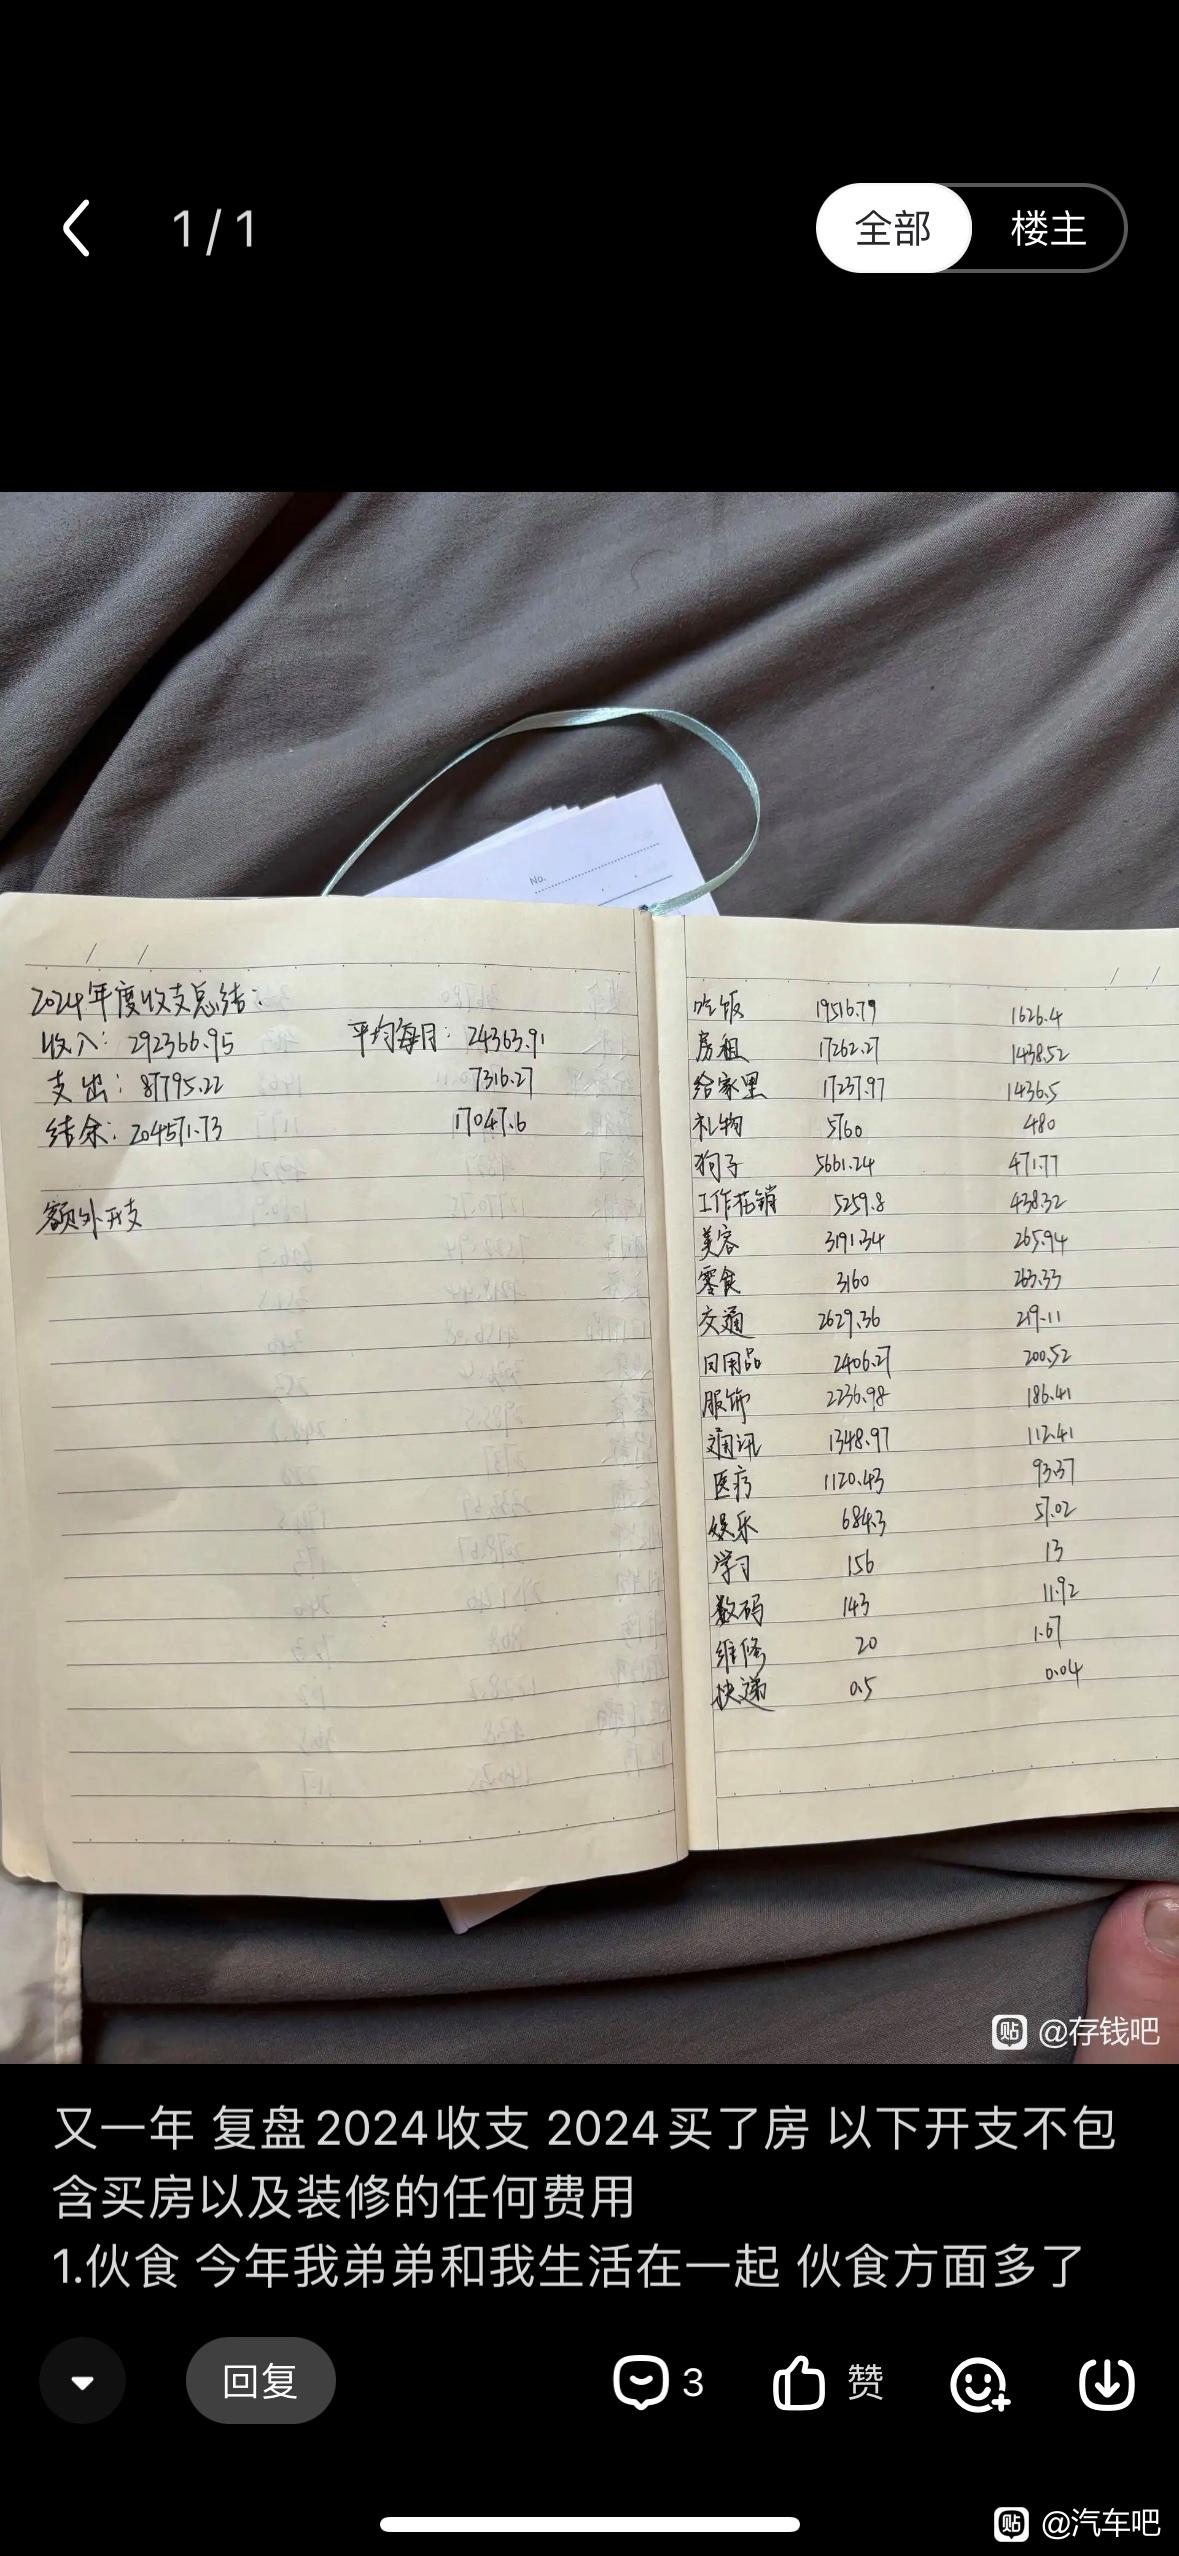 1/1
全部
楼主
No.
2024年度收支总结:
收入: 292366.95 平均每月: 24363.91
支出: 87795.22 7316.27
结余: 204571.73 17047.6
额外开支
吃饭 19516.79 1626.4
房租 17262.27 1438.52
给家里 17237.97 1436.5
礼物 5760 480
狗子 5661.24 471.77
工作花销 5259.8 438.32
美容 3191.34 265.94
零食 3160 263.33
交通 2629.36 219.11
日用品 2406.27 200.52
服饰 2236.98 186.41
通讯 1348.97 112.41
医疗 1120.43 93.37
娱乐 684.3 57.02
学习 156 13
数码 143 11.92
维修 20 1.67
快递 0.5 0.04
贴 @存钱吧
又一年 复盘2024收支 2024买了房 以下开支不包
含买房以及装修的任何费用
1.伙食 今年我弟弟和我生活在一起 伙食方面多了
回复
3
赞
贴 @汽车吧